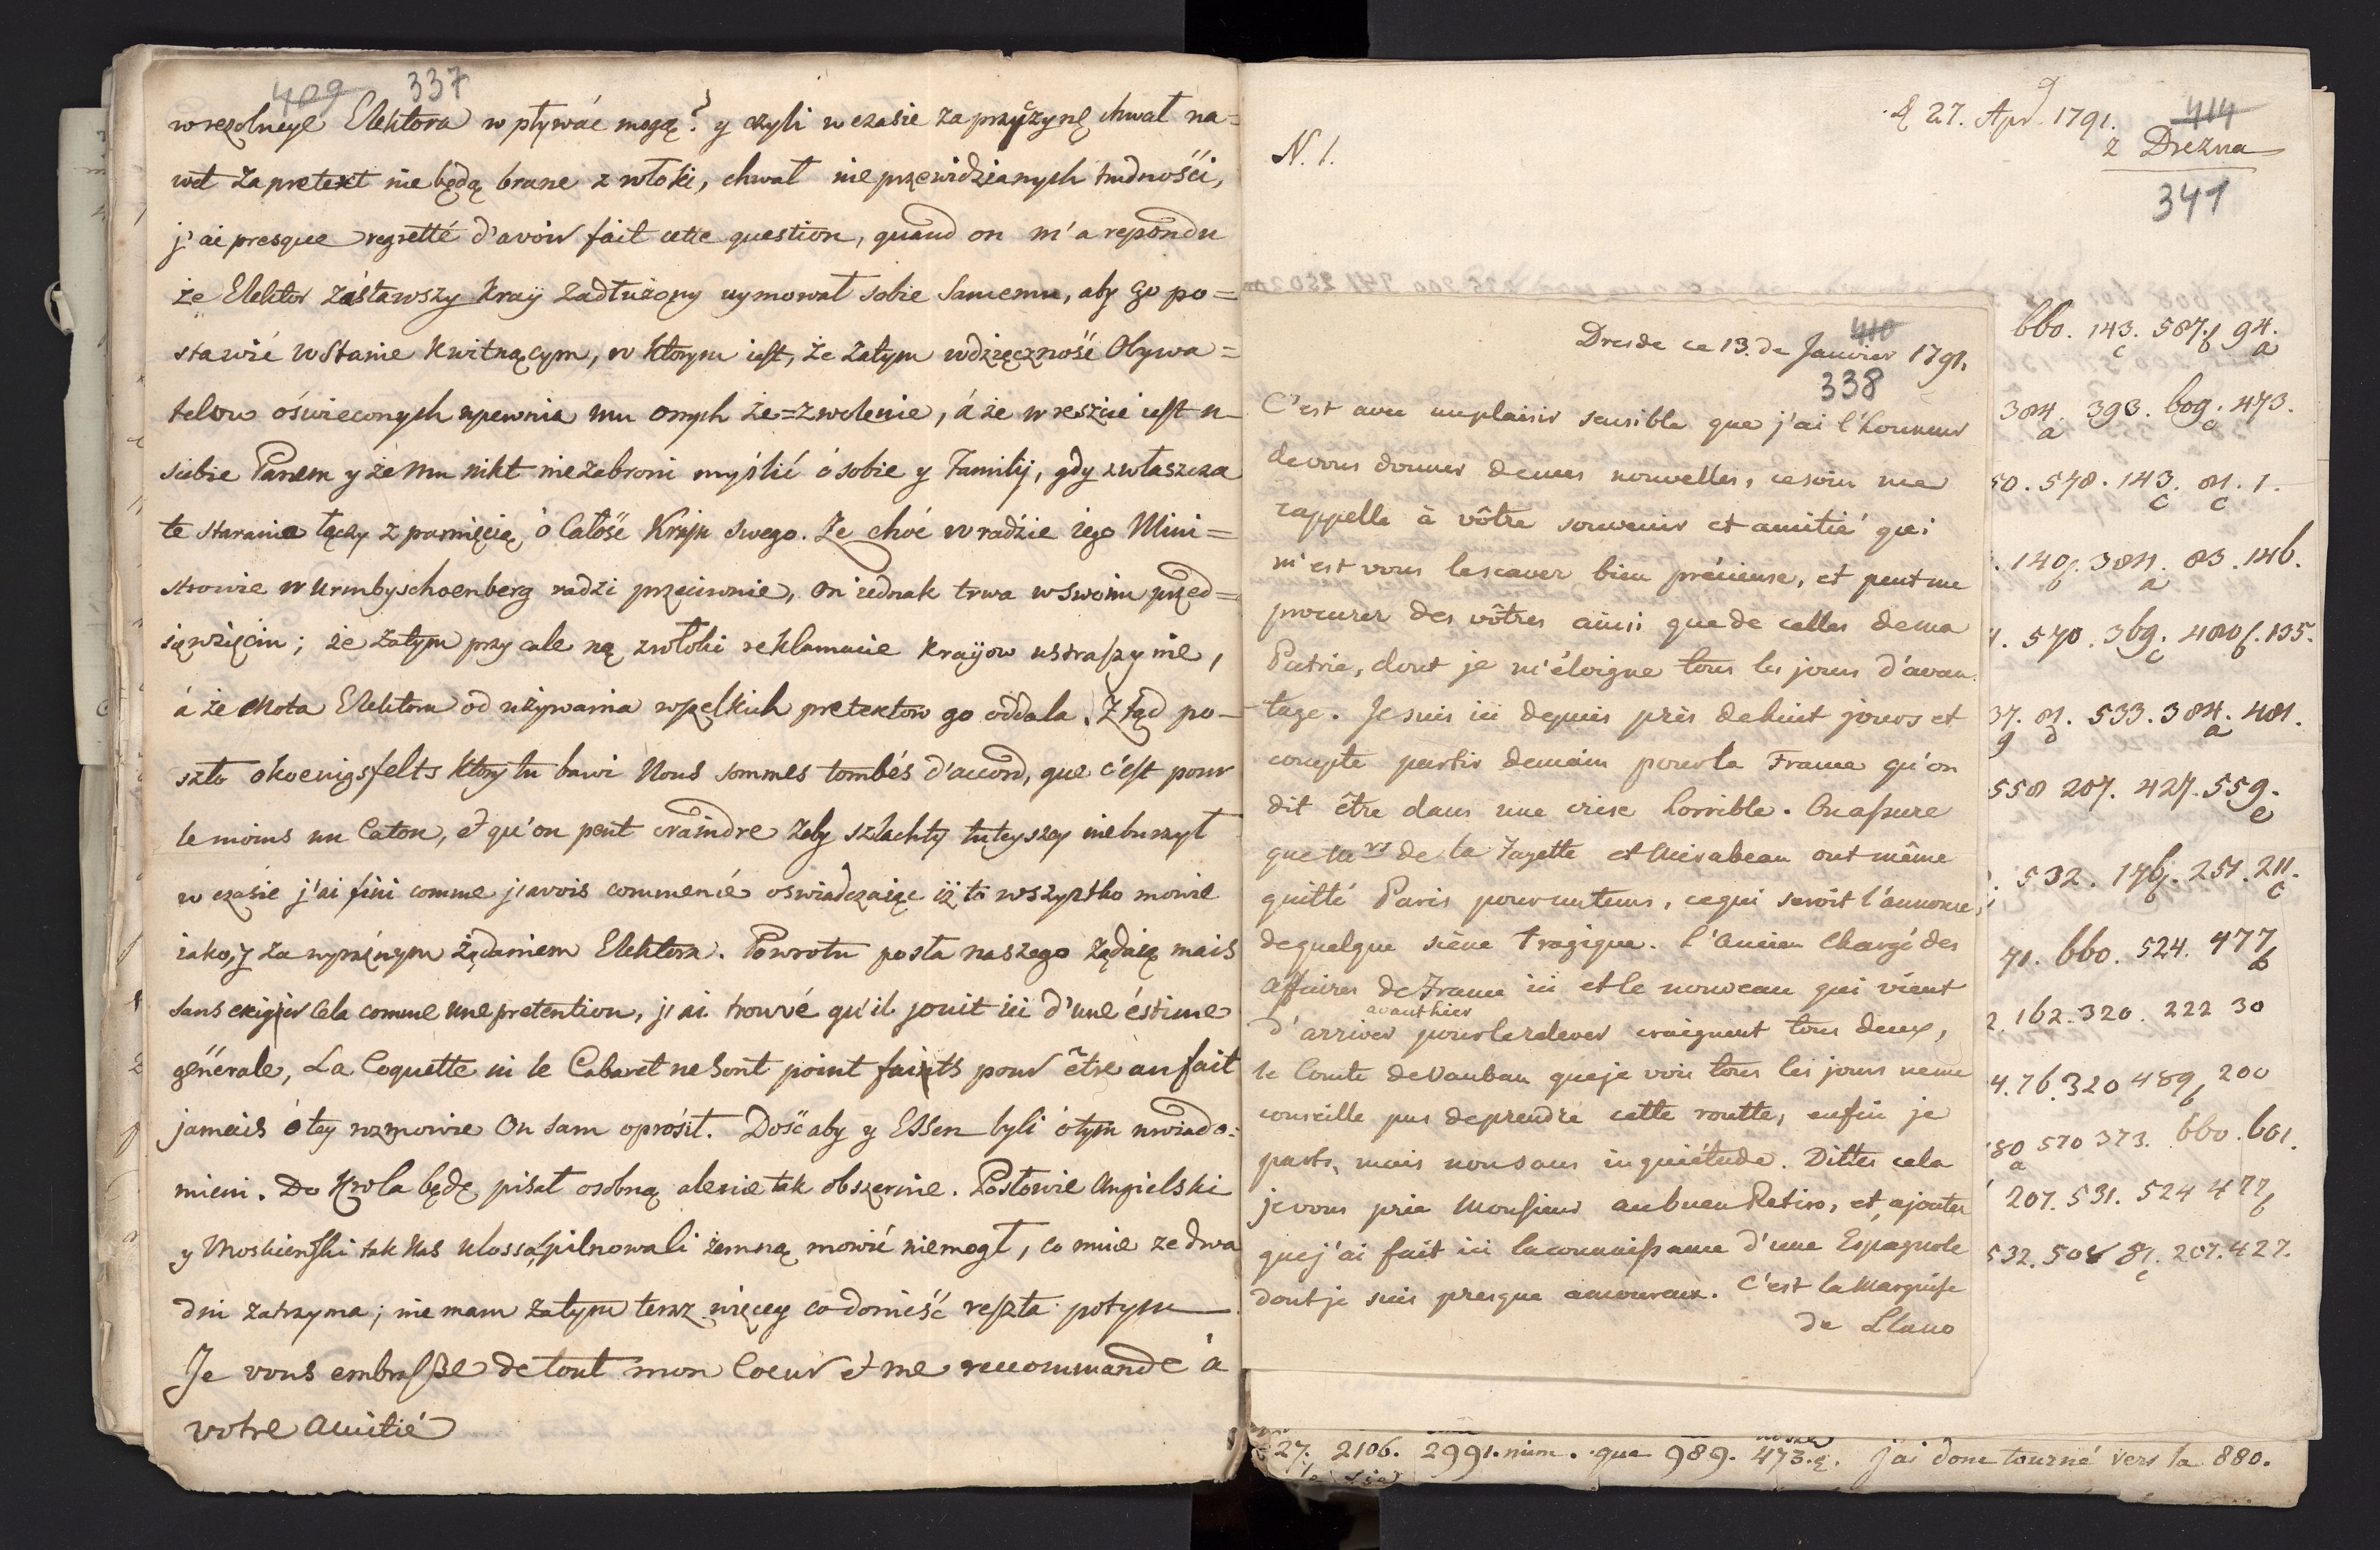 409 337
w rezolucye Elektora w pływać mogą? y czyli w czasie za przyczynę chwał na=
wet za pretext nie będą brane zwłoki, chwał nieprzewidzianych trudności,
j'ai presque regretté d'avoir fait cette question, quand on m'a repondu
że Elektor zástawszy kray zadłużony uymował sobie samemu, aby go po=
stawić w stanie kwitnącym, w ktorym iest, że zatym wdzięczność Obywa=
telow oświeconych upewnia mu onych ze=zwolenie, á że w reszcie iest u
siebie Panem y że mu nikt nie zabroni myślić ó sobie y Familij, gdy zwłaszcza
te starania łączy z pamięcią ó całość Kraju swego. Ze choć w radzie iego Mini=
strowie wurmbyschoenberg radzi przeciwnie, on iednak trwa w swoim przed=
sięwzięciu; że zatym przy cale ną zwłoki reklamacie kraijow ustraszy nie,
á że cnota Elektora od używania wszelkich pretextow go oddala. Ztąd po-
szło okoenigsfelts ktory tu bawi Nous sommes tombés d'accord, que c'est pour
le moins un Caton, et qu'on peut craindre żeby szlachty tuteyszey nieburzył
w czasie j'ai fini comme j'avois commencé oswiadczaiąc iż to wszystko mowie
iako, y za wyraźnym żądaniem Elektora. Powrotu posła naszego żądaią mais
sans exigier cela comme une pretention, j'ai trouvé qu'il jouit ici d'une éstime
générale, La Coquette ni le Cabaret ne sont point faits pour être au fait
jamais ó tey rozmowie On sam oprosił. Dość aby y Essen byli ó tym uwiado=
mieni. Do Krola będę pisał osobną ale nie tak obszernie. Posłowie Angielski
y Moskiewski tak nas ulossa, pilnowali żemną mowić niemogł, co mnie ze dwa
dni zatrzyma; nie mam zatym teraz więcey co donieść reszta potym
Je vous embrasse de tout mon Coeur et me recommande à
votre amitié
27. Apr. 1791.
414
z Drezna
341
N. 1.
Dresde ce 13. de Janvier 1791.
410
338
C'est avec un plaisir sensible que j'ai l'honneur
de vous donner de mes nouvelles, ce soin me
rappelle à vôtre souvenir et amitié qui
m'est vous le scaver bien précieuse, et peut me
procurer des vôtres ainsi que de celles de ma
Patrie, dont je m'éloigne tous les jours d'avan-
tage. Je suis ici depuis près de huit jours et
compte partir demain pour la France qu'on
dit être dans une crise horrible. On assure
que Mrs de la Fayette et Mirabeau ont même
quitté Paris pour un tems, ce qui seroit l'annonce
de quelque scène tragique. L'ancien Chargé des
affaires de France ici et le nouveau qui vient
d'arriver avanthier pour le relever craignent tous deux,
le Comte de Vauban que je vois tous les jours ne me
conseille pas de prendre cette routte, enfin je
parts, mais non sans inquiétude. Dittes cela
je vous prie Monsieur au buen Retiro, et ajoutez
que j'ai fait ici la connaissance d'une Espagnole
dont je suis presque amoureux. C'est la Marquise
de Llano
660. 143.c 587.f 94.a
384.a 393. 609.c 473.
50. 578. 143.c 81.c 1.
140.f 384.a 83. 146.
570. 369.c 480.f 135.
37.g 81.d 533. 384.a 481.
558 207. 427. 559.e
532. 176. 251. 211.c
71. 660. 524. 477.b
2. 162. 320. 222 30
4. 76. 320 489.b 200
80.a 570 373. 660. 601.
207. 531. 524 477.b
532. 508 81.c 207. 427.
27. 2106. 2991. nim. que 989. 473. ę. j'ai donc tourné vers la 880.